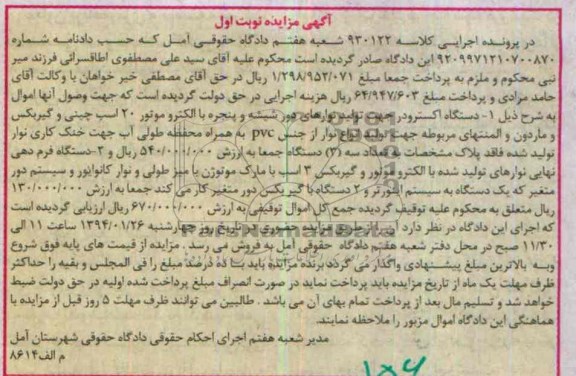 آگهی مزایده نوبت اول
در پرونده اجرایی کلاسه ۹۳۰۱۲۲ شعبه هفتم دادگاه حقوقی آمل که حسب دادنامه شماره
۹۲۰۹۹۷۱۲۱۰۷۰۰۸۷۰ این دادگاه صادر گردیده است محکوم علیه آقای سید علی مصطفوی اطاقسرائی فرزند میر
نبی محکوم و ملزم به پرداخت جمعا مبلغ ۱/۲۹۸/۹۵۲/۰۷۱ ریال در حق آقای مصطفی خیر خواهان با وکالت آقای
حامد مرادی و پرداخت مبلغ ۶۴/۹۴۷/۶۰۳ ریال هزینه اجرایی در حق دولت گردیده است که جهت وصول آنها اموال
به شرح ذیل ۱- دستگاه اکسترودر جهت تولید نوارهای دور شیشه و پنجره با الکترو موتور ۲۰ اسب چینی و گیربکس
و ماردون و المنتهای مربوطه جهت تولید انواع نوار از جنس pvc به همراه محفظه طولی آب جهت خنک کاری نوار
تولید شده فاقد پلاک مشخصات به تعداد سه (۳) دستگاه جمعا به ارزش ۵۴۰/۰۰۰/۰۰۰ ریال و ۲-دستگاه فرم دهی
نهایی نوارهای تولید شده با الکترو موتور و گیربکس ۳ اسب با مارک موتوژن با میز طولی و نوار کانوایور و سیستم دور
متغیر که یک دستگاه به سیستم اینورتر و ۲ دستگاه با گیربکس دور متغیر کار می کند جمعا به ارزش ۱۳۰/۰۰۰/۰۰۰
ریال متعلق به محکوم علیه توقیف گردیده جمع کل اموال توقیفی به ارزش ۶۷۰/۰۰۰/۰۰۰ ریال ارزیابی گردیده است
که اجرای این دادگاه در نظر دارد آن را از طریق مزایده حضوری در تاریخ روز چهارشنبه ۱۳۹۴/۰۱/۲۶ ساعت ۱۱ الی
۱۱/۳۰ صبح در محل دفتر شعبه هفتم دادگاه حقوقی آمل به فروش می رسد . مزایده از قیمت های پایه فوق شروع
وبه بالاترین مبلغ پیشنهادی واگذار می گردد برنده مزایده باید ده درصد مبلغ را فی المجلس و بقیه را حداکثر
ظرف مهلت یک ماه از تاریخ مزایده باید پرداخت نماید در صورت انصراف مبلغ پرداخت شده اولیه در حق دولت ضبط
خواهد شد و تسلیم مال بعد از پرداخت تمام بهای آن می باشد . طالبین می توانند ظرف مهلت ۵ روز قبل از مزایده با
هماهنگی این دادگاه اموال مزبور را ملاحظه نمایند.
مدیر شعبه هفتم اجرای احکام حقوقی دادگاه حقوقی شهرستان آمل
م الف ۸۶۱۴